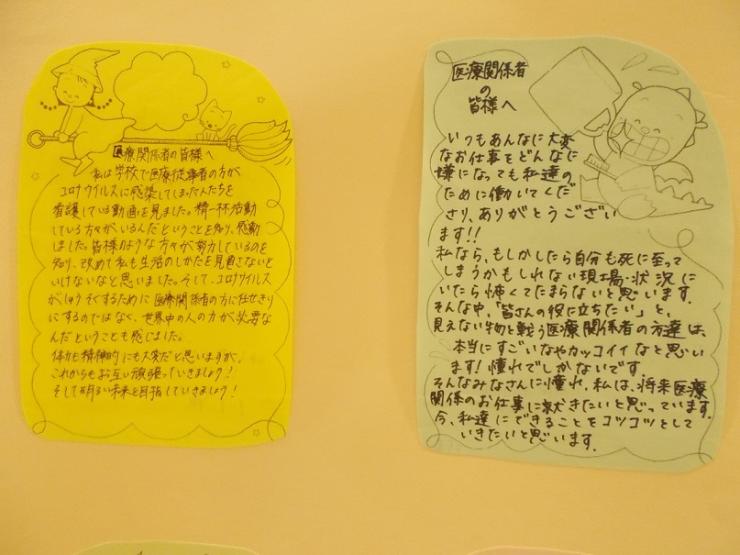 医療関係者の皆様へ
私は学校で医療従事者の方が、
コロナウイルスに感染してしまった人たちを
看護している動画を見ました。精一杯活動
している方々がいるんだということを知り、感動
しました。皆様のような方々が努力しているのを
知り、改めて私も生活のしかたを見直さないと
いけないなと思いました。そして、コロナウイルス
がしゅうそくするために医療関係者の方に任せきり
にするのではなく、世界中の人の力が必要な
んだということも感じました。
体力も精神的にも大変だと思いますが、
これからもお互い頑張っていきましょう!
そして明るい未来を目指していきましょう!
医療関係者
の
皆様へ
いつもあんなに大変
なお仕事をどんなに
嫌になっても私達の
ために働いてくだ
さり、ありがとうござい
ます!!
私なら、もしかしたら自分も死に至って
しまうかもしれない現場・状況に
いたら怖くてたまらないと思います。
そんな中、「皆さんの役に立ちたい」と、
見えない物と戦う医療関係者の方達は、
本当にすごいなやカッコイイなと思い
ます!憧れでしかないです。
そんなみなさんに憧れ、私は、将来医療
関係のお仕事に就きたいと思っています。
今、私達にできることをコツコツとして
いきたいと思います。